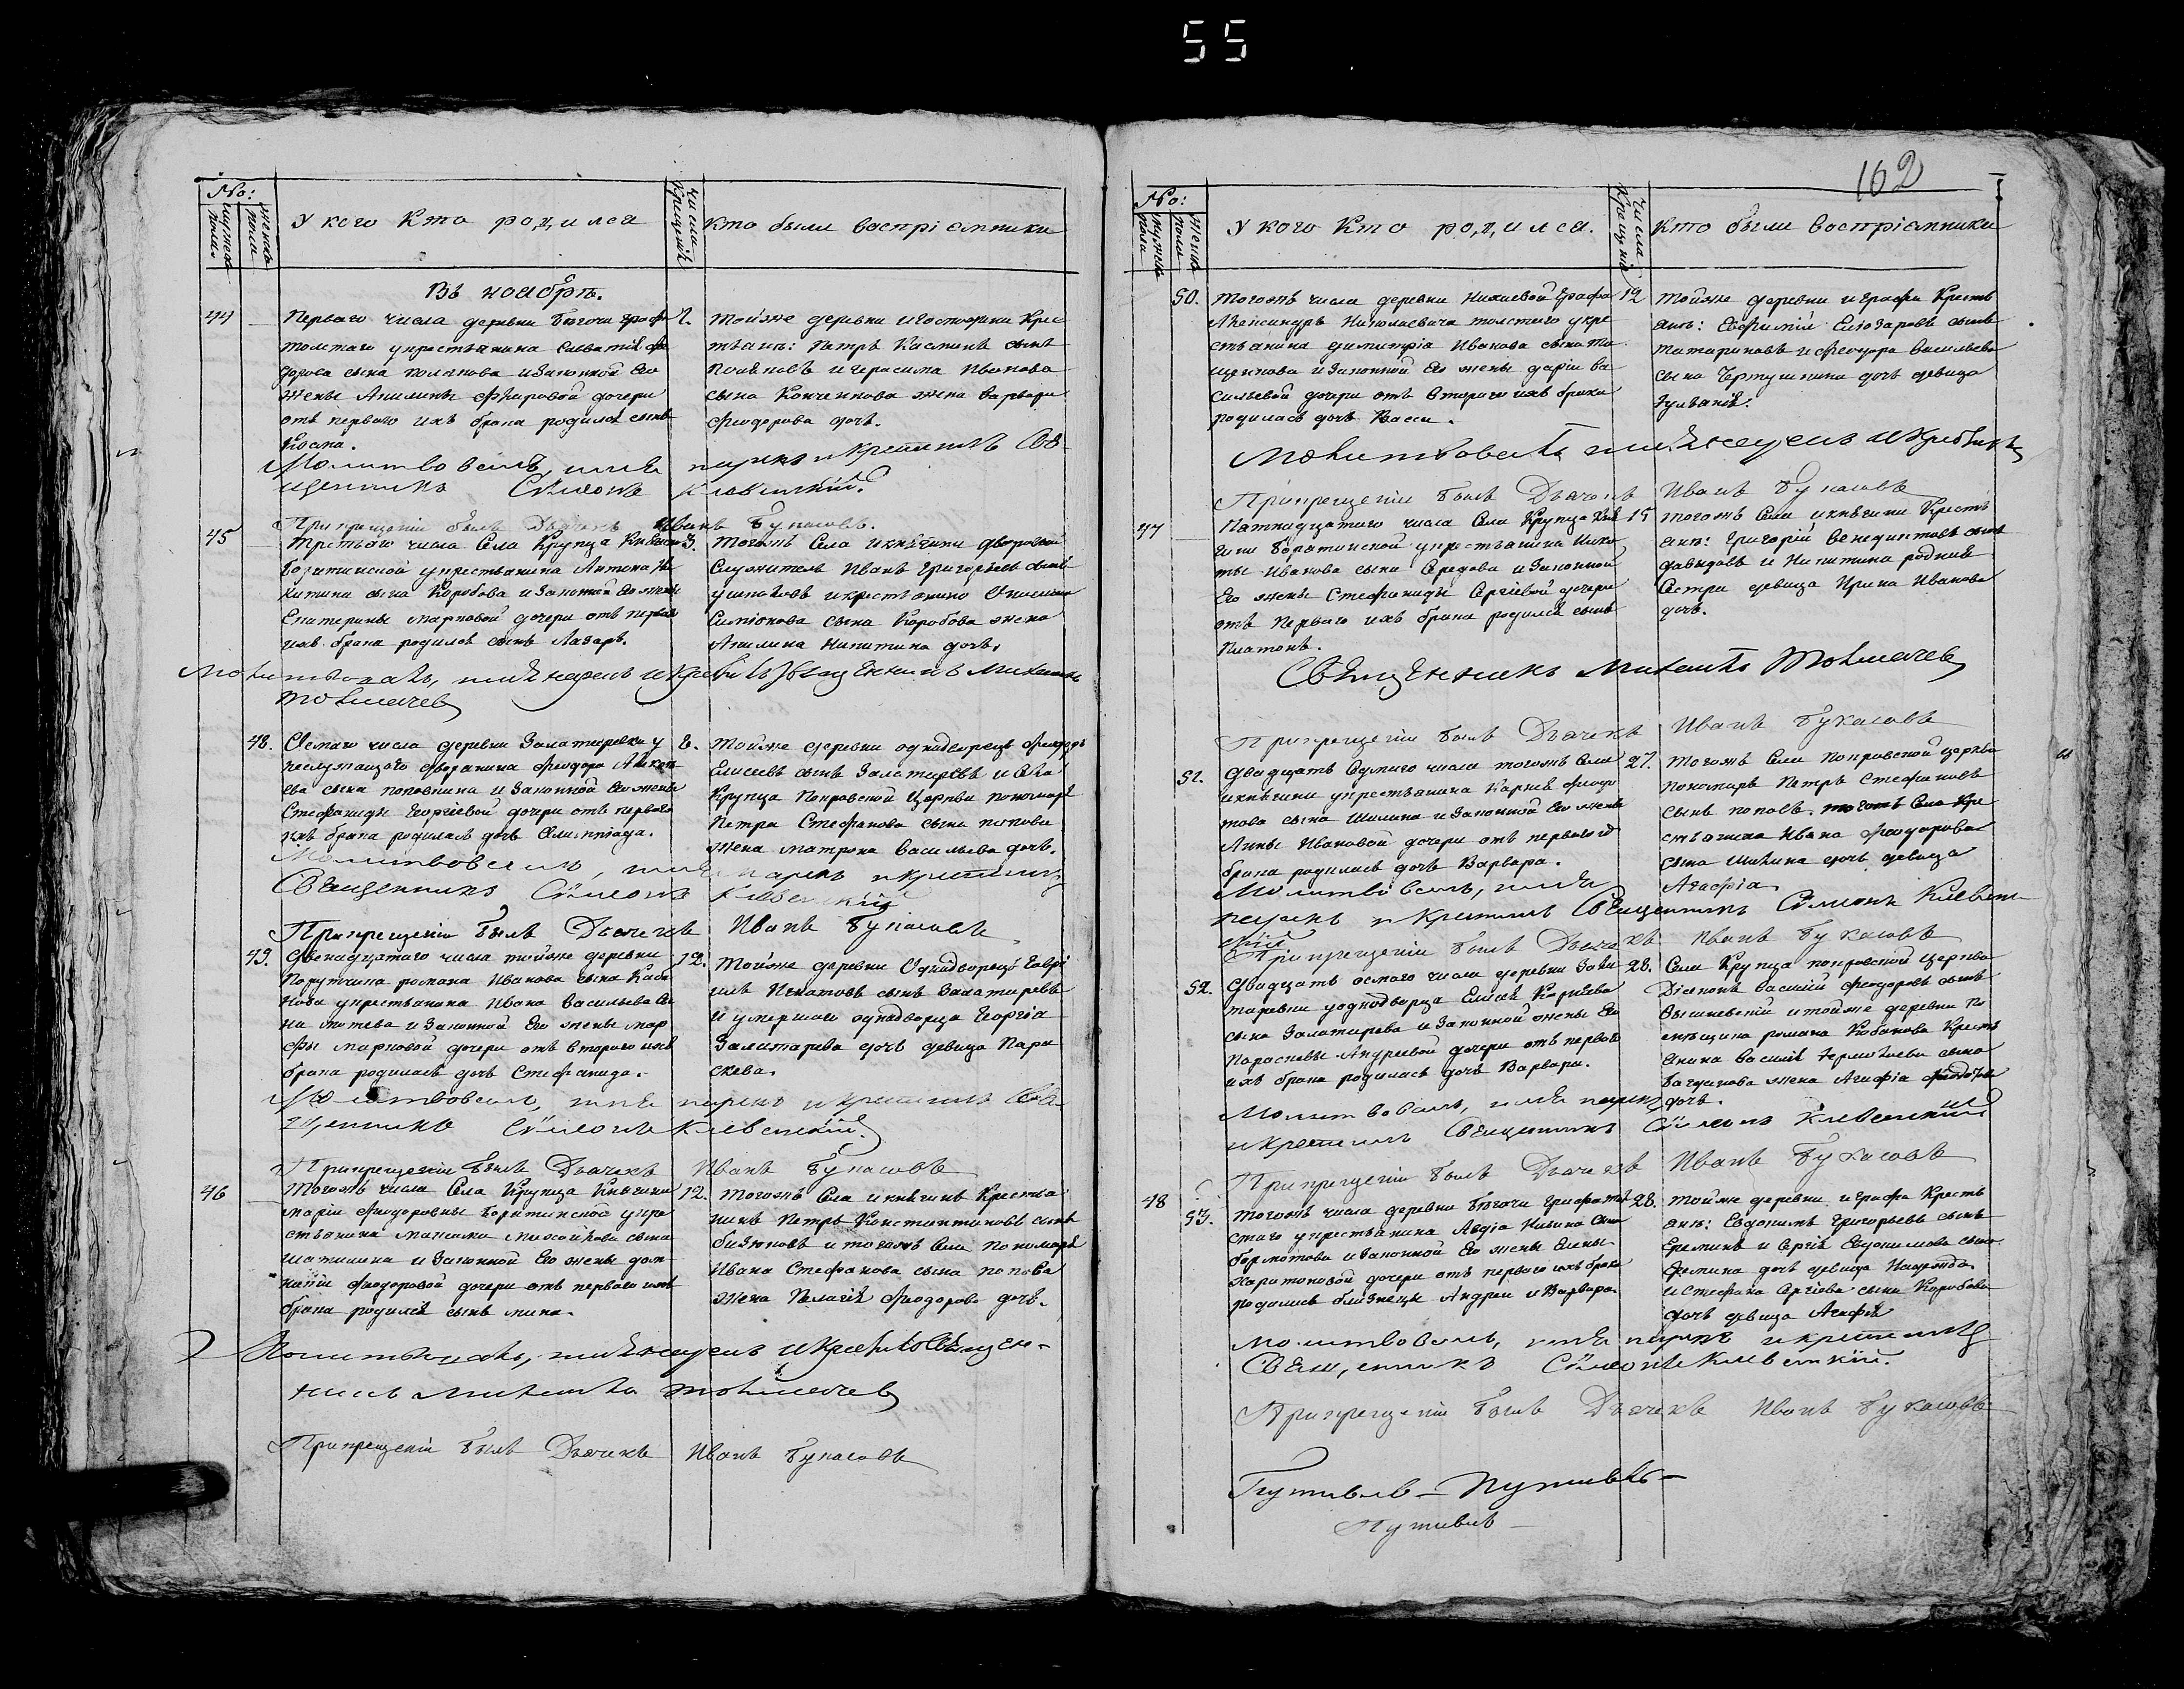 55
No:
мужеска пола
женска пола
У кого Кто родился
Числа Крещенія
Кто были воспріемники
Въ ноябрѣ.
44
Перваго числа деревни Бѣгочи графа
толстаго у крестьянина
дорова сына Полякова и законной Его
жены Акилины дочери
отъ перваго ихъ брака родился сынъ
Косма.
2.
тойже деревни и Крес
тьянъ: Петръ Касминъ сынъ
Поляковъ и Герасима Иванова
сына жена Варвара
Феодорова дочь.
Молитвовалъ, имя нарекъ и крестилъ Свя-
щенникъ Сѵмеонъ Клевецкій.
При крещеніи былъ Дьячекъ Иванъ Букасовъ.
45
третьяго числа Села Крупца Княгини
Борятинской у крестьянина Антона Ни
китина сына Коробова и законной Его жены
Екатерины Марковой дочери отъ перваго
ихъ брака родился сынъ Лазарь.
3.
тогожъ Села и княгини дворовой
Служитель Иванъ Григорьевъ сынъ
Ушаковъ и крестьянина
Симіонова сына Коробова жена
Акилина Никитина дочь.
Молитвовалъ, имя нарекъ и крестилъ Священникъ Михаилъ
Толмачев
48.
Осмаго числа деревни Залатаревки у
неслужащаго дворянина Феодора
ева сына Поповкина и законной Его жены
Стефаниды Георгіевой дочери отъ перваго
ихъ брака родилась дочь Олимпіада.
8.
тойже деревни однодворецъ Феодоръ
Елисеевъ сынъ Залатаревъ и Села
Крупца Покровской Церкви пономаря
Петра Стефанова сына попова
жена Матрона Васильева дочь.
Молитвовалъ, имя нарекъ и крестилъ
Священникъ Сѵмеонъ Клевецкій
При крещеніи былъ Дьячекъ Иванъ Букасовъ
49.
Двенадцатаго числа тойже деревни
Порутчика Романа Иванова сына Каба
нова у крестьянина Ивана Васильева сы
на и законной Его жены Мар
фы Марковой дочери отъ втораго ихъ
брака родилась дочь Стефанида.
12.
тойже деревни Однодворецъ Гаврі
илъ Игнатовъ сынъ Залатаревъ
и умершаго однодворца Георгія
Залатарева дочь девица Пара
скева.
Молитвовалъ, имя нарекъ и крестилъ Свя-
щенникъ Сѵмеонъ Клевецкій.
При крещеніи былъ Дьячекъ Иванъ Букасовъ
46
Тогожъ числа Села Крупца Княгини
Маріи Феодоровны Борятинской у кре
стьянина Максима сына
и законной Его жены Дом
никіи Феодоровой дочери отъ перваго ихъ
брака родился сынъ Мина.
12.
тогожъ Села и княгини Крестья
нинъ Петръ Константиновъ сынъ
Бизюковъ и тогожъ Села пономаря
Ивана Стефанова сына попова
жена Пелагія Феодорова дочь.
Молитвовалъ, имя нарекъ и крестилъ Священ-
никъ Михаилъ Толмачев
При крещеніи былъ Дьячекъ Иванъ Букасовъ
162
No:
мужеска пола
женска пола
У кого Кто родился.
Числа Крещенія
Кто были воспріемники
50.
тогожъ числа деревни графа
Александръ Николаевича толстаго у кре
стьянина Димитрія Иванова сына Та
щенкова и законной Его жены Даріи Ва
сильевой дочери отъ втораго ихъ брака
родилась дочь Васса.
12
тойже деревни и графа Кресть
янъ: Евфимій сынъ
Татариновъ и Феодора Васильева
сына дочь девица
Гуліанія.
Молитвовалъ имя нарекъ и крестилъ
При крещеніи былъ Дьячекъ Иванъ Букасовъ
47
Пятнадцатаго числа Села Крупца Кня
гини Борятинской у крестьянина Ники
ты Иванова сына Середова и законной
Его жены Стефаниды Сергіевой дочери
отъ перваго ихъ брака родился сынъ
Платонъ.
15
тогожъ Села и княгини Кресть
янъ: Григорій Венедиктовъ сынъ
Давыдовъ и Никитина родная
Сестра девица Ирина Иванова
дочь.
Священникъ Михаилъ Толмачев
При крещеніи былъ Дьячекъ Иванъ Букасовъ
51.
Двадцать Седмаго числа тогожъ Села
и княгини у крестьянина Карнея
това сына Шилина и законной Его жены
Анны Ивановой дочери отъ перваго
брака родилась дочь Варвара.
27.
тогожъ Села Покровской церкви
пономарь Петръ Стефановъ
сынъ поповъ. тогожъ Села Кре
стьянина Ивана Феодорова
сына Шилина дочь девица
Агафія
Молитвовалъ, имя
нарекъ и крестилъ Священникъ Сѵмеонъ Клевец
кій.
При крещеніи былъ Дьячекъ Иванъ Букасовъ
52.
Двадцать осмаго числа деревни Зала
таревки у однодворца Елисея Карнеева
сына Залатарева и законной жены Его
Парасковьи Андреевой дочери отъ перваго
ихъ брака родилась дочь Варвара.
28.
Села Крупца покровской церкви
Діаконъ Василій Феодоровъ сынъ
Вышневскій и тойже деревни по
мещика Романа Кабанова Кресть
янина Василія Ермолаева сына
жена Агафія
дочь.
Молитвовалъ, имя нарекъ
и крестилъ Священникъ Сѵмеонъ Клевецкій
При крещеніи былъ Дьячекъ Иванъ Букасовъ
48
53.
тогожъ числа деревни Бѣгочи графа тол
стаго у крестьянина Авдія сына
и законной Его жены Елены
Харитоновой дочери отъ перваго ихъ брака
родились близнецы Андрей и Варвара.
28.
тойже деревни и графа Кресть
янъ: Евдокимъ Григорьевъ сынъ
Ереминъ и Сергія Евдокимова сына
Еремина дочь девица
и Стефана Сергіева сына Коробова
дочь девица Агафія
Молитвовалъ, имя нарекъ и крестилъ
Священникъ Сѵмеонъ Клевецкій.
При крещеніи былъ Дьячекъ Иванъ Букасовъ
Путивль — Путивль —
Путивль —